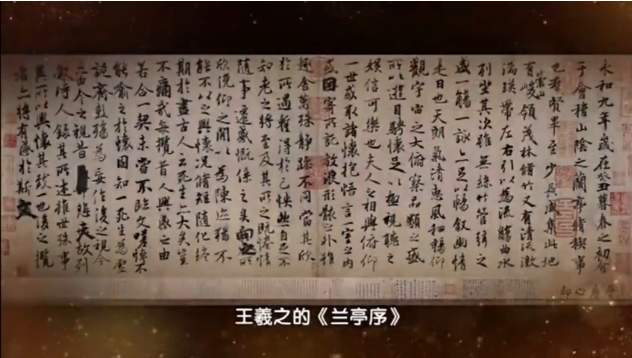 永和九年歲在癸丑暮春之初會
于會稽山陰之蘭亭脩稧事
也群賢畢至少長咸集此地
有崇山峻領茂林脩竹又有清流激
湍暎帶左右引以為流觴曲水
列坐其次雖無絲竹管弦之
盛一觴一詠亦足以暢敘幽情
是日也天朗氣清惠風和暢仰
觀宇宙之大俯察品類之盛
所以遊目騁懷足以極視聽之
娛信可樂也夫人之相與俯仰
一世或取諸懷抱悟言一室之內
或因寄所託放浪形骸之外雖
趣舍萬殊靜躁不同當其欣
於所遇蹔得於己怏然自足不
知老之將至及其所之既惓情
隨事遷感慨係之矣向之所
欣俛仰之閒以為陳迹猶不
能不以之興懷況脩短隨化終
期於盡古人云死生亦大矣豈
不痛哉每攬昔人興感之由
若合一契未嘗不臨文嗟悼不
能喻之於懷固知一死生為虛
誕齊彭殤為妄作後之視今
亦由今之視昔悲夫故列
敘時人錄其所述雖世殊事
異所以興懷其致一也後之攬
者亦將有感於斯文
王羲之的《兰亭序》